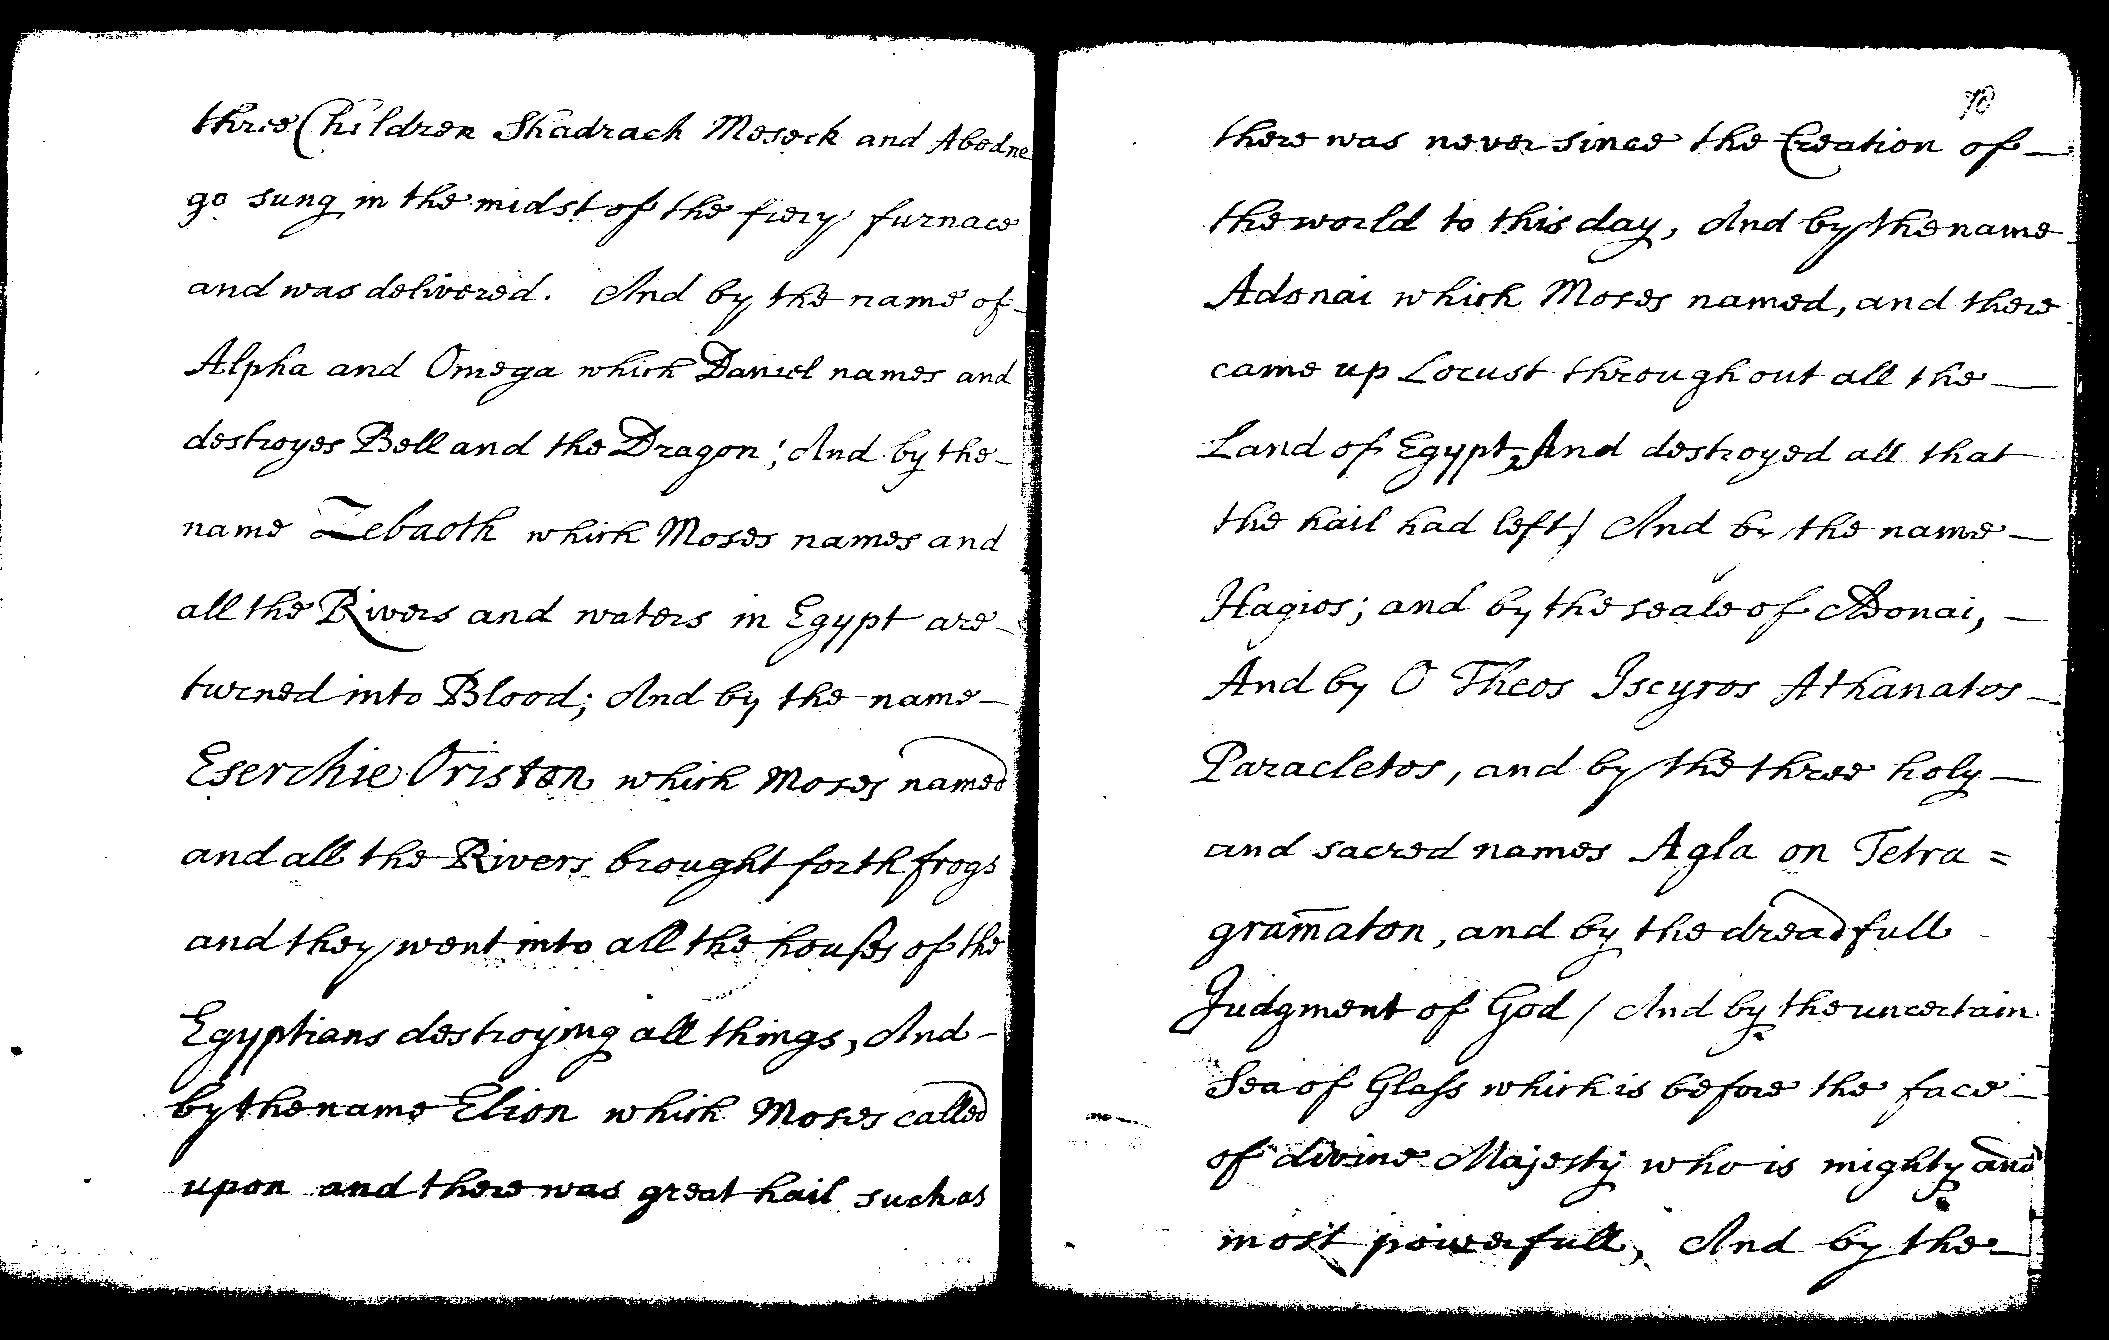 three Children Shadrach Meseck and Abedne
go sung in the midst of the fiery furnace
and was delivered. And by the name of
Alpha and Omega which Daniel names and
destroyes Bell and the Dragon; And by the
name Zebaoth which Moses names and
all the Rivers and waters in Egypt are
turned into Blood; And by the name
Eserchie Oriston which Moses named
and all the Rivers brought forth frogs
and they went into all the houses of the
Egyptians destroying all things, And
by the name Elion which Moses called
upon and there was great hail such as
70
there was never since the Creation of
the world to this day, And by the name
Adonai which Moses named, and there
came up Locust throughout all the
Land of Egypt, And destroyed all that
the hail had left; And by the name
Hagios; and by the seale of Adonai,
And by O Theos Iscyros Athanatos
Paracletos, and by the three holy
and sacred names Agla on Tetra=
gram̄aton, and by the dreadfull
Judgment of God / And by the uncertain
Sea of Glass which is before the face
of divine Majesty who is mighty and
most powerfull, And by the